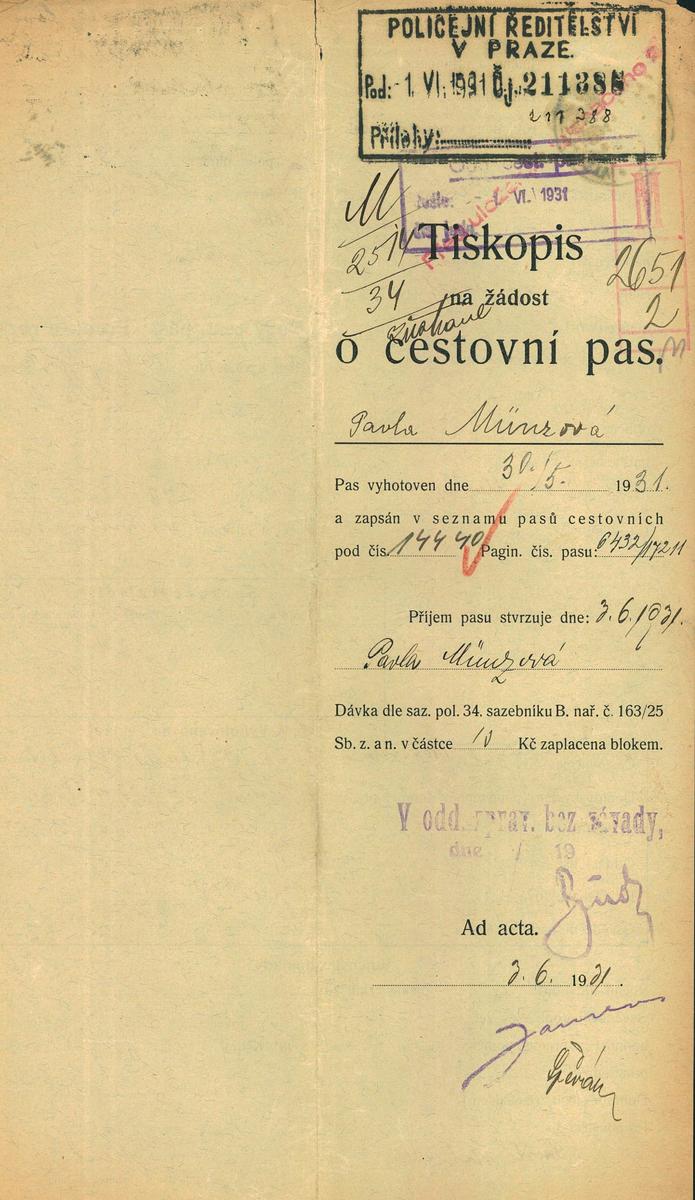 POLICEJNÍ ŘEDITELSTVÍ
V PRAZE.
Pod: -1. VI. 1931 Čj. 211388
211388
Přílohy:
1. VI. 1931
M
2514
34
Tiskopis
2651
2
na žádost
o cestovní pas.
Pavla Münzová
Pas vyhotoven dne 30./5. 1931.
a zapsán v seznamu pasů cestovních
pod čís. 14440 Pagin. čís. pasu: 6432/17211
Příjem pasu stvrzuje dne: 3.6.1931.
Pavla Münzová
Dávka dle saz. pol. 34. sazebníku B. nař. č. 163/25
Sb. z. a n. v částce 10 Kč zaplacena blokem.
V odd. zprav. bez závady,
dne / 19
Ad acta.
3. 6. 1931.